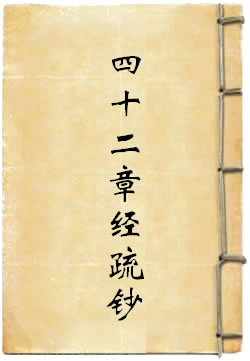 四十二章经疏钞